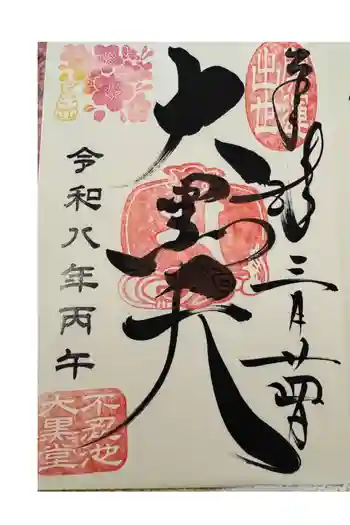 奉拝
三月廿四日
大黒天
令和八年丙午
不忍池
大黒堂